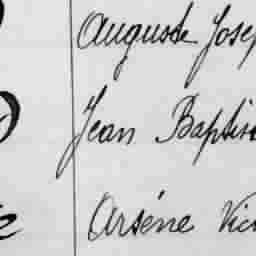 Auguste Josep
Jean Baptis
Arsène Vic